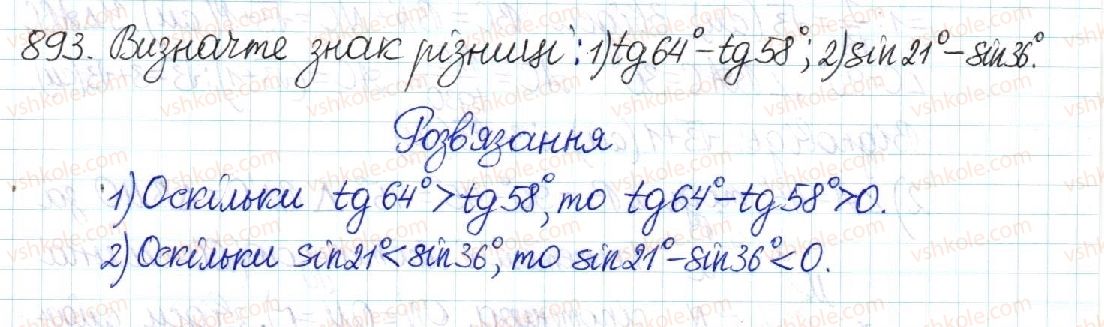 893. Визначте знак різниці: 1) tg64° - tg58°; 2) sin21° - sin36°.
Розв'язання
1) Оскільки tg64° > tg58°, то tg64° - tg58° > 0.
2) Оскільки sin21° < sin36°, то sin21° - sin36° < 0.